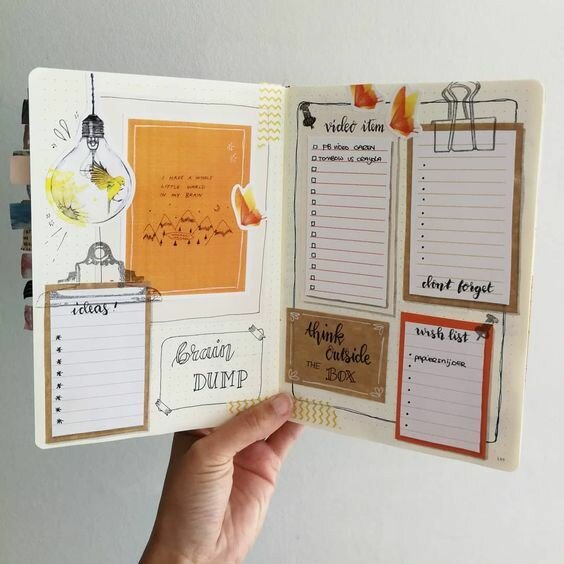 I HAVE A WHOLE
LITTLE WORLD
IN MY BRAIN
ideas!
brain
DUMP
video item
FB VIDEO
TOMBOW VS CRAYOLA
don't forget
think
outside
THE BOX
wish list
PAPIERSNIJDER